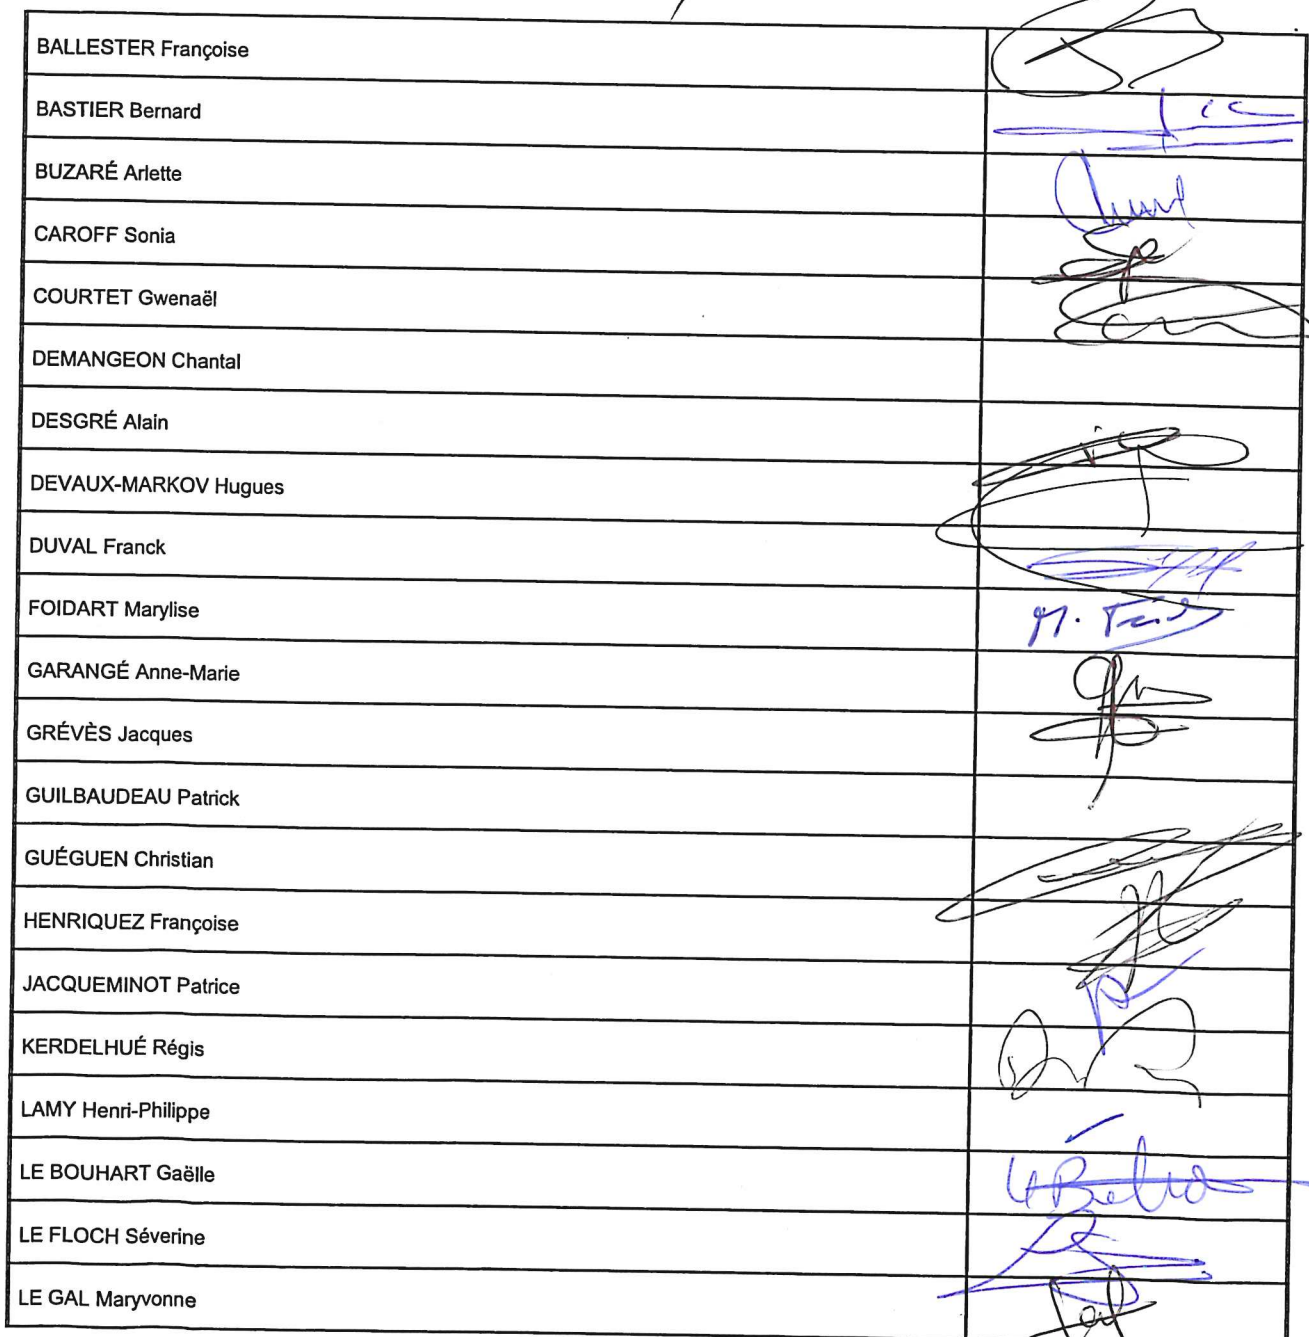 BALLESTER Françoise
BASTIER Bernard
BUZARÉ Arlette
CAROFF Sonia
COURTET Gwenaël
DEMANGEON Chantal
DESGRÉ Alain
DEVAUX-MARKOV Hugues
DUVAL Franck
FOIDART Marylise
M.
GARANGÉ Anne-Marie
GRÉVÈS Jacques
GUILBAUDEAU Patrick
GUÉGUEN Christian
HENRIQUEZ Françoise
JACQUEMINOT Patrice
KERDELHUÉ Régis
LAMY Henri-Philippe
LE BOUHART Gaëlle
LE FLOCH Séverine
LE GAL Maryvonne